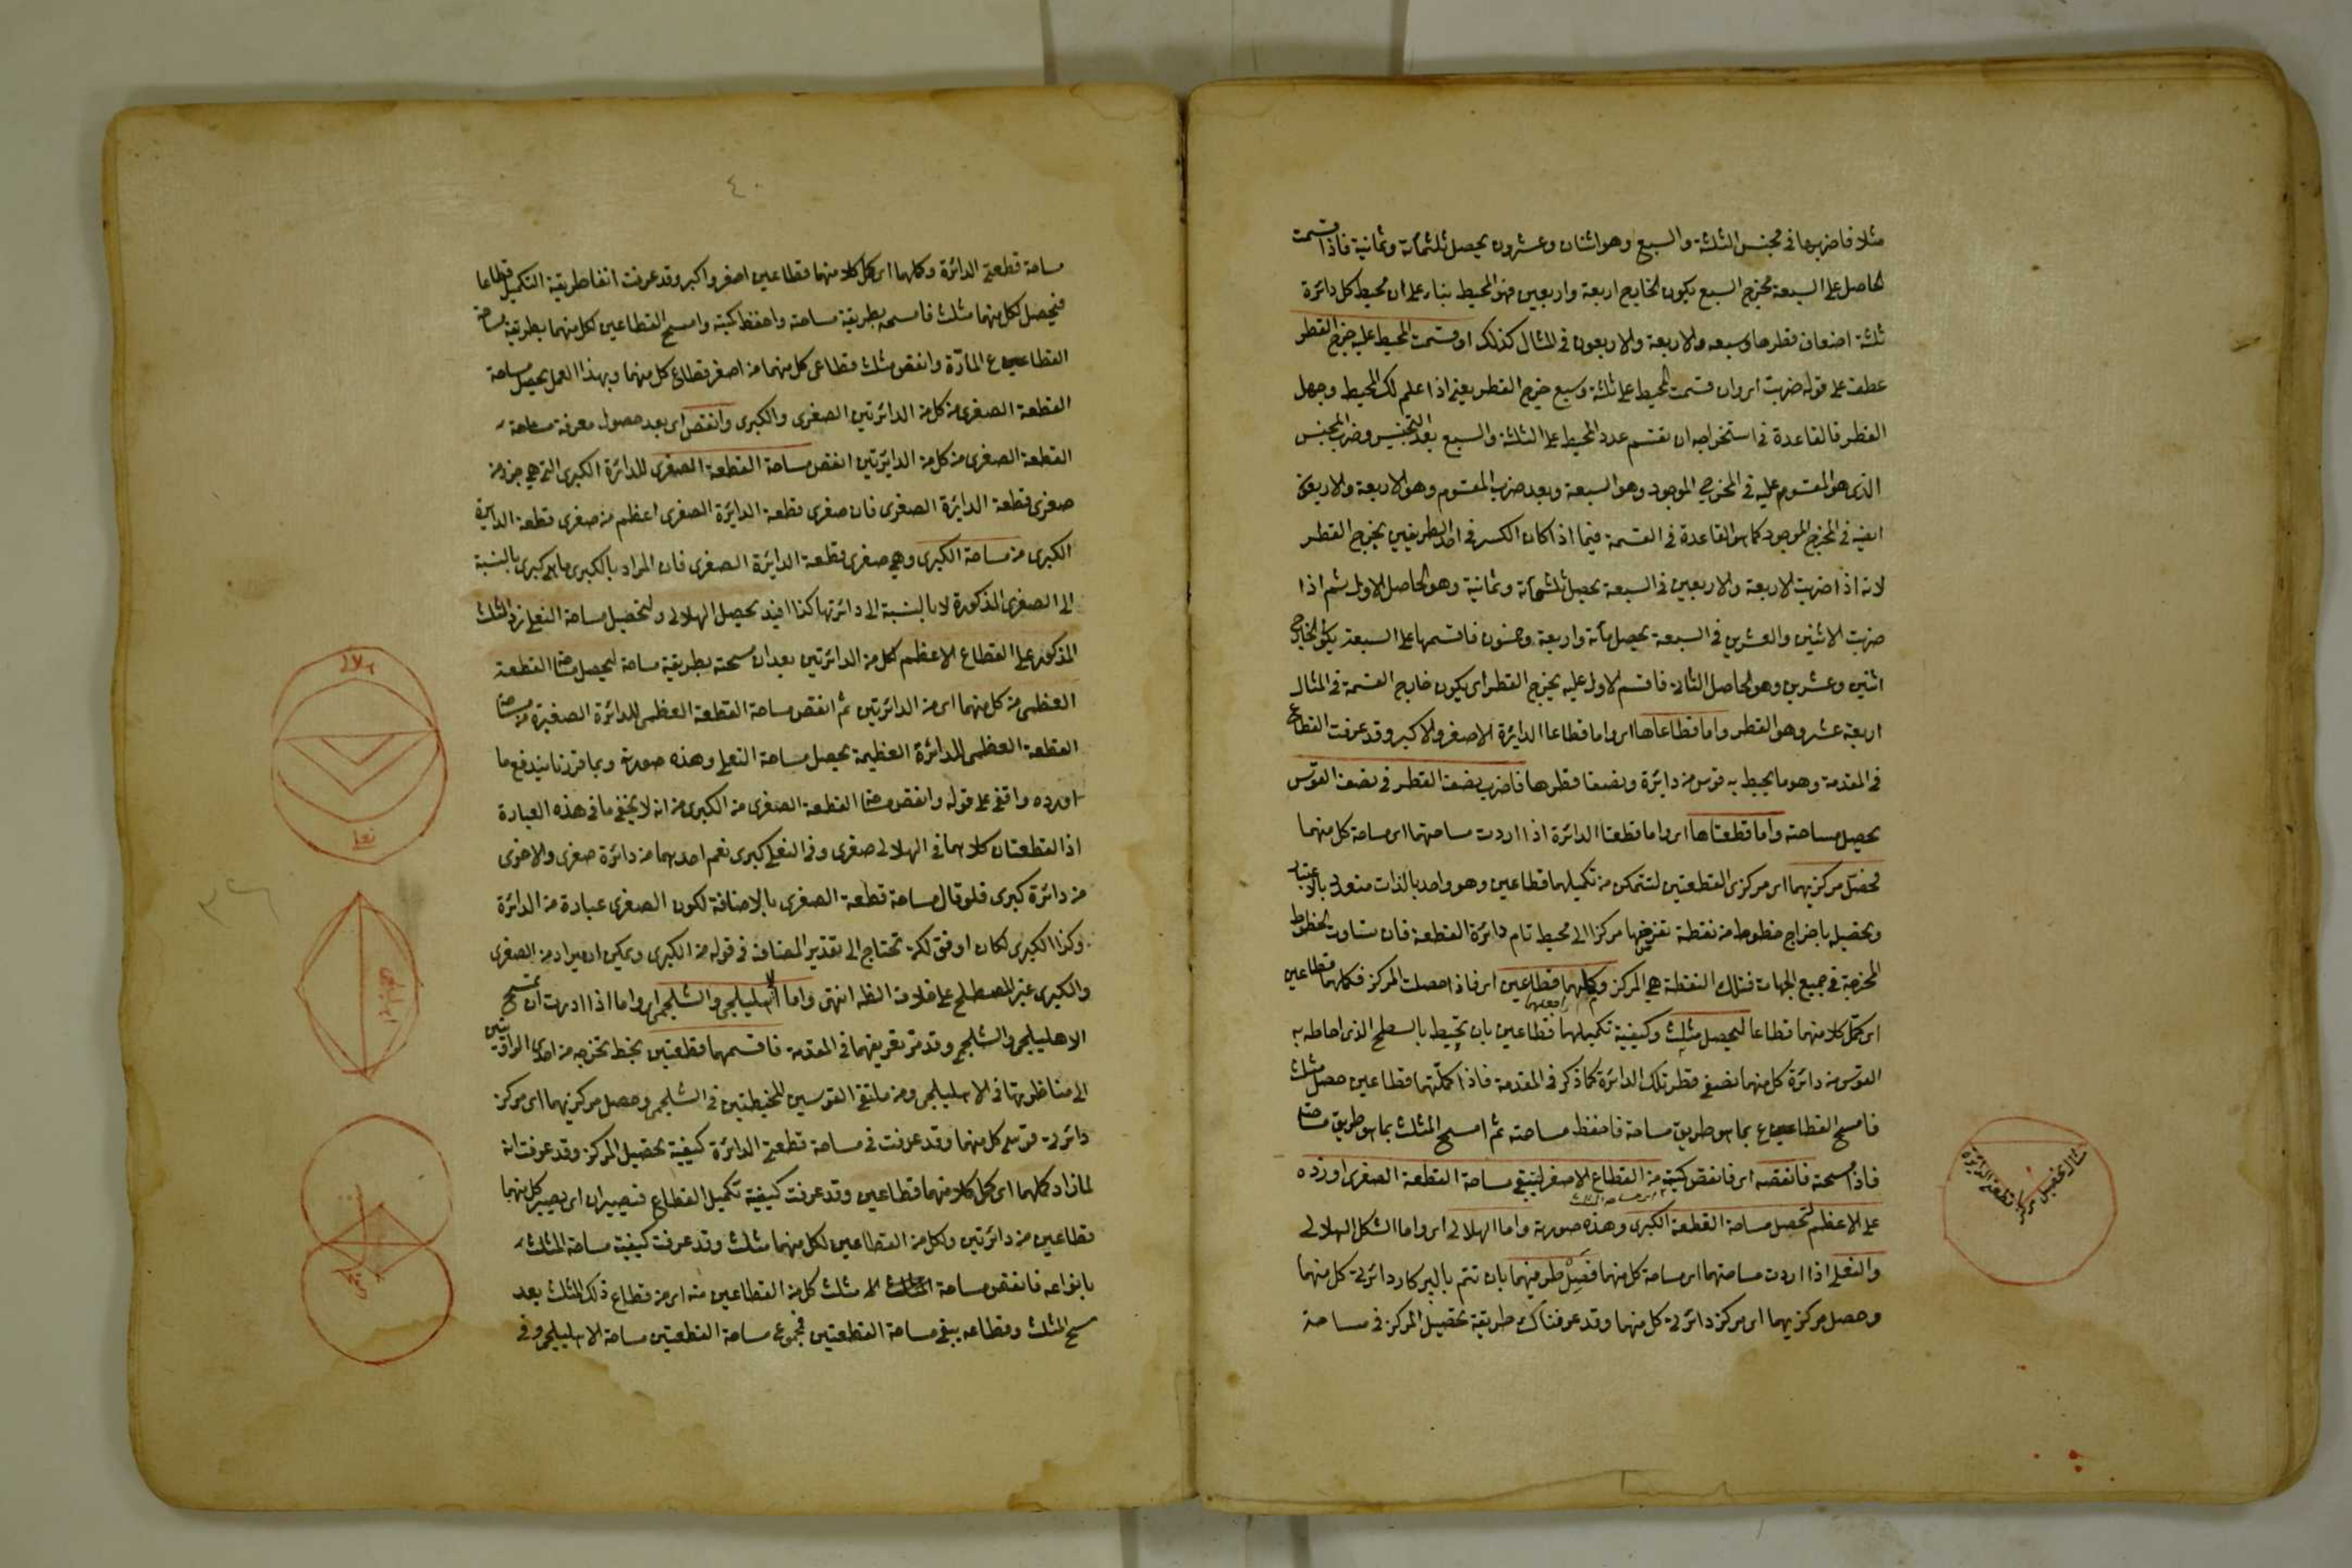 مثلا فاضربها فى مجنس الثلثة والسبع وهو اثنان وعشرون يحصل ثلثمائة وثمانية فاذا قسمت
الحاصل على السبعة مخرج السبع يكون الخارج اربعة واربعين فهو المحيط بناء على ان محيط كل دائرة
ثلثة اضعاف قطرها وسبعه والاربعة والاربعون فى المثال كذلك او قسمت المحيط عليه خرج القطر
عطف على قوله ضربت اى وان قسمت المحيط على ثلثة وسبع خرج القطر يعنى اذا علم لك المحيط وجهل
القطر فالقاعدة فى استخراجه ان تقسم عدد المحيط على الثلثة والسبع بعد التجنيس وضرب المجنس
الذى هو المقسوم عليه فى المخرج الموجود وهو السبعة وبعد ضرب المقسوم وهو الاربعة والاربعون
ايضا فى المخرج الموجود كما هو القاعدة فى القسمة فيما اذا كان الكسر فى احد الطرفين يخرج القطر
لانه اذا ضربت الاربعة والاربعين فى السبعة يحصل ثلثمائة وثمانية وهو الحاصل الاول ثم اذا
ضربت الاثنين والعشرين فى السبعة يحصل مائة واربعة وخمسون فاقسمها على السبعة يكون الخارج
اثنين وعشرين وهو الحاصل الثانى فاقسم الاول عليه يخرج القطر اى يكون خارج القسمة فى المثال
اربعة عشر وهو القطر واما قطاعاها اى واما قطاعا الدايرة الاصغر والاكبر وقد عرفت القطاع
فى المقدمة وهو ما يحيط به قوس من دايرة ونصفا قطرها فاضرب نصف القطر فى نصف القوس
يحصل مساحته واما قطعتاها اى واما قطعتا الدائرة اذا اردت مساحتهما اى مساحة كل منهما
فحصل مركزيهما اى مركزى القطعتين لتتمكن من تكميلهما قطاعين وهو واحد بالذات متعدد بالاعتبار
وتحصيله باخراج خطوط من نقطة تفرضها مركزا الى محيط تام دائرة القطعة فان تساوت الخطوط
المخرجة فى جميع الجهات فتلك النقطة هى المركز وكملهما قطاعين اى فاذا حصلت المركز فكملهما قطاعين
اى كمل كلا منهما قطاعا ليحصل مثلث وكيفية تكميلهما قطاعين بان تحيط بالسطح الذى احاط به
القوس من دائرة كل منهما نصفى قطر تلك الدائرة كما ذكر فى المقدمة فاذا كملتهما قطاعين حصل مثلث
فامسح القطاع بما هو طريق مساحة فاحفظ مساحته ثم امسح المثلث بما هو طريق مساحته
فاذا مسحته فانقصه اى فانقص كميته من القطاع الاصغر ليبقى مساحة القطعة الصغرى او زده
على الاعظم لتحصل مساحة القطعة الكبرى وهذه صورته واما الهلالى اى واما الشكل الهلالى
والنعلى اذا اردت مساحتهما اى مساحة كل منهما فصل طرفيهما بان تتم بالبركار دائرتى كل منهما
وحصل مركزيهما اى مركز دائرتى كل منهما وقد عرفناك طريقة تحصيل المركز فى مساحة
مثال تحصيل مركز قطعتى الدائرة
٤٠
مساحة قطعتى الدائرة وكملهما اى كمل كلا منهما قطاعين اصغر واكبر وقد عرفت انفا طريقة التكميل قطاعا
فيحصل لكل منهما مثلث فامسحه بطريقة مساحته واحفظ كميته وامسح القطاعين لكل منهما بطريقة مساحة
القطاع المارّة وانقص مثلث قطاعى كل منهما من اصغر قطاع كل منهما وبهذا العمل يحصل مساحة
القطعة الصغرى من كل من الدائرتين الصغرى والكبرى وانقص اى بعد حصول معرفة مساحة
القطعة الصغرى من كل من الدايرتين انقص مساحة القطعة الصغرى للدائرة الكبرى التى هى جزء من
صغرى قطعة الدايرة الصغرى فان صغرى قطعة الدايرة الصغرى اعظم من صغرى قطعة الدايرة
الكبرى من مساحة الكبرى وهى صغرى قطعة الدايرة الصغرى فان المراد بالكبرى ما هى كبرى بالنسبة
الى الصغرى المذكورة لا بالنسبة الى دائرتها كذا افيد يحصل الهلالى ولتحصيل مساحة النعلى زد المثلث
المذكور على القطاع الاعظم لكل من الدائرتين بعد ان مسحته بطريقة مساحة ليحصل مساحتا القطعة
العظمى من كل منهما اى من الدائرتين ثم انقص مساحة القطعة العظمى للدائرة الصغيرة من مساحة
القطعة العظمى للدائرة العظيمة يحصل مساحة النعلى وهذه صورته وبما قررنا يندفع ما
اورده واقفى على قوله وانقص مساحة القطعة الصغرى من الكبرى من انه لا يخفى ما فى هذه العبارة
اذ القطعتان كلاهما فى الهلالى صغرى وفى النعلى كبرى نعم احديهما من دائرة صغرى والاخرى
من دائرة كبرى فلو قال مساحة قطعة الصغرى بالاضافة لكون الصغرى عبارة من الدائرة
وكذا الكبرى لكان اوفق لكنه تحتاج الى تقدير المضاف فى قوله من الكبرى ويمكن ان يراد من الصغرى
والكبرى غير المصطلح على خلاف الظ انتهى واما الاهليلجى والشلجمى اى واما اذا اردت ان تمسح
الاهليلجى والشلجمى وقد مر تعريفهما فى المقدمة فاقسمهما قطعتين بخط تخرجه من احدى الزاويتين
الى مناظرتها فى الاهليلجى ومن ملتقى القوسين المحيطتين فى الشلجمى وحصل مركزيهما اى مركز
دائرتى قوسى كل منهما وقد عرفت فى مساحة قطعتى الدائرة كيفية تحصيل المركز وقد عرفت انه
لماذا وكملهما اى كمل كلا منهما قطاعين وقد عرفت كيفية تكميل القطاع فيصيران اى يصير كل منهما
قطاعين من دائرتين ولكل من القطاعين لكل منهما مثلث وقد عرفت كيفية مساحة المثلث
بانواعه فانقص مساحة مثلث كل من القطاعين منه اى من قطاع ذلك المثلث بعد
مسح المثلث وقطاعه يبقى مساحة القطعتين فمجموع مساحة القطعتين مساحة الاهليلجى وفى
هلالى
نعلى
اهليلجى
شلجمى